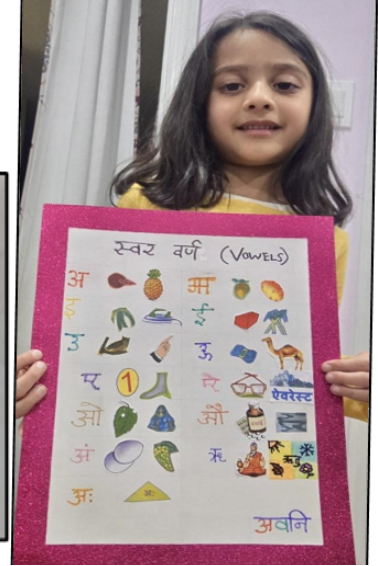 स्वर वर्ण (VOWELS)
अ आ
इ ई
उ ऊ
ए 1 ऐ ऐवरेस्ट
ओ औ
अं ऋ ऋतु
अः अः
अवनि